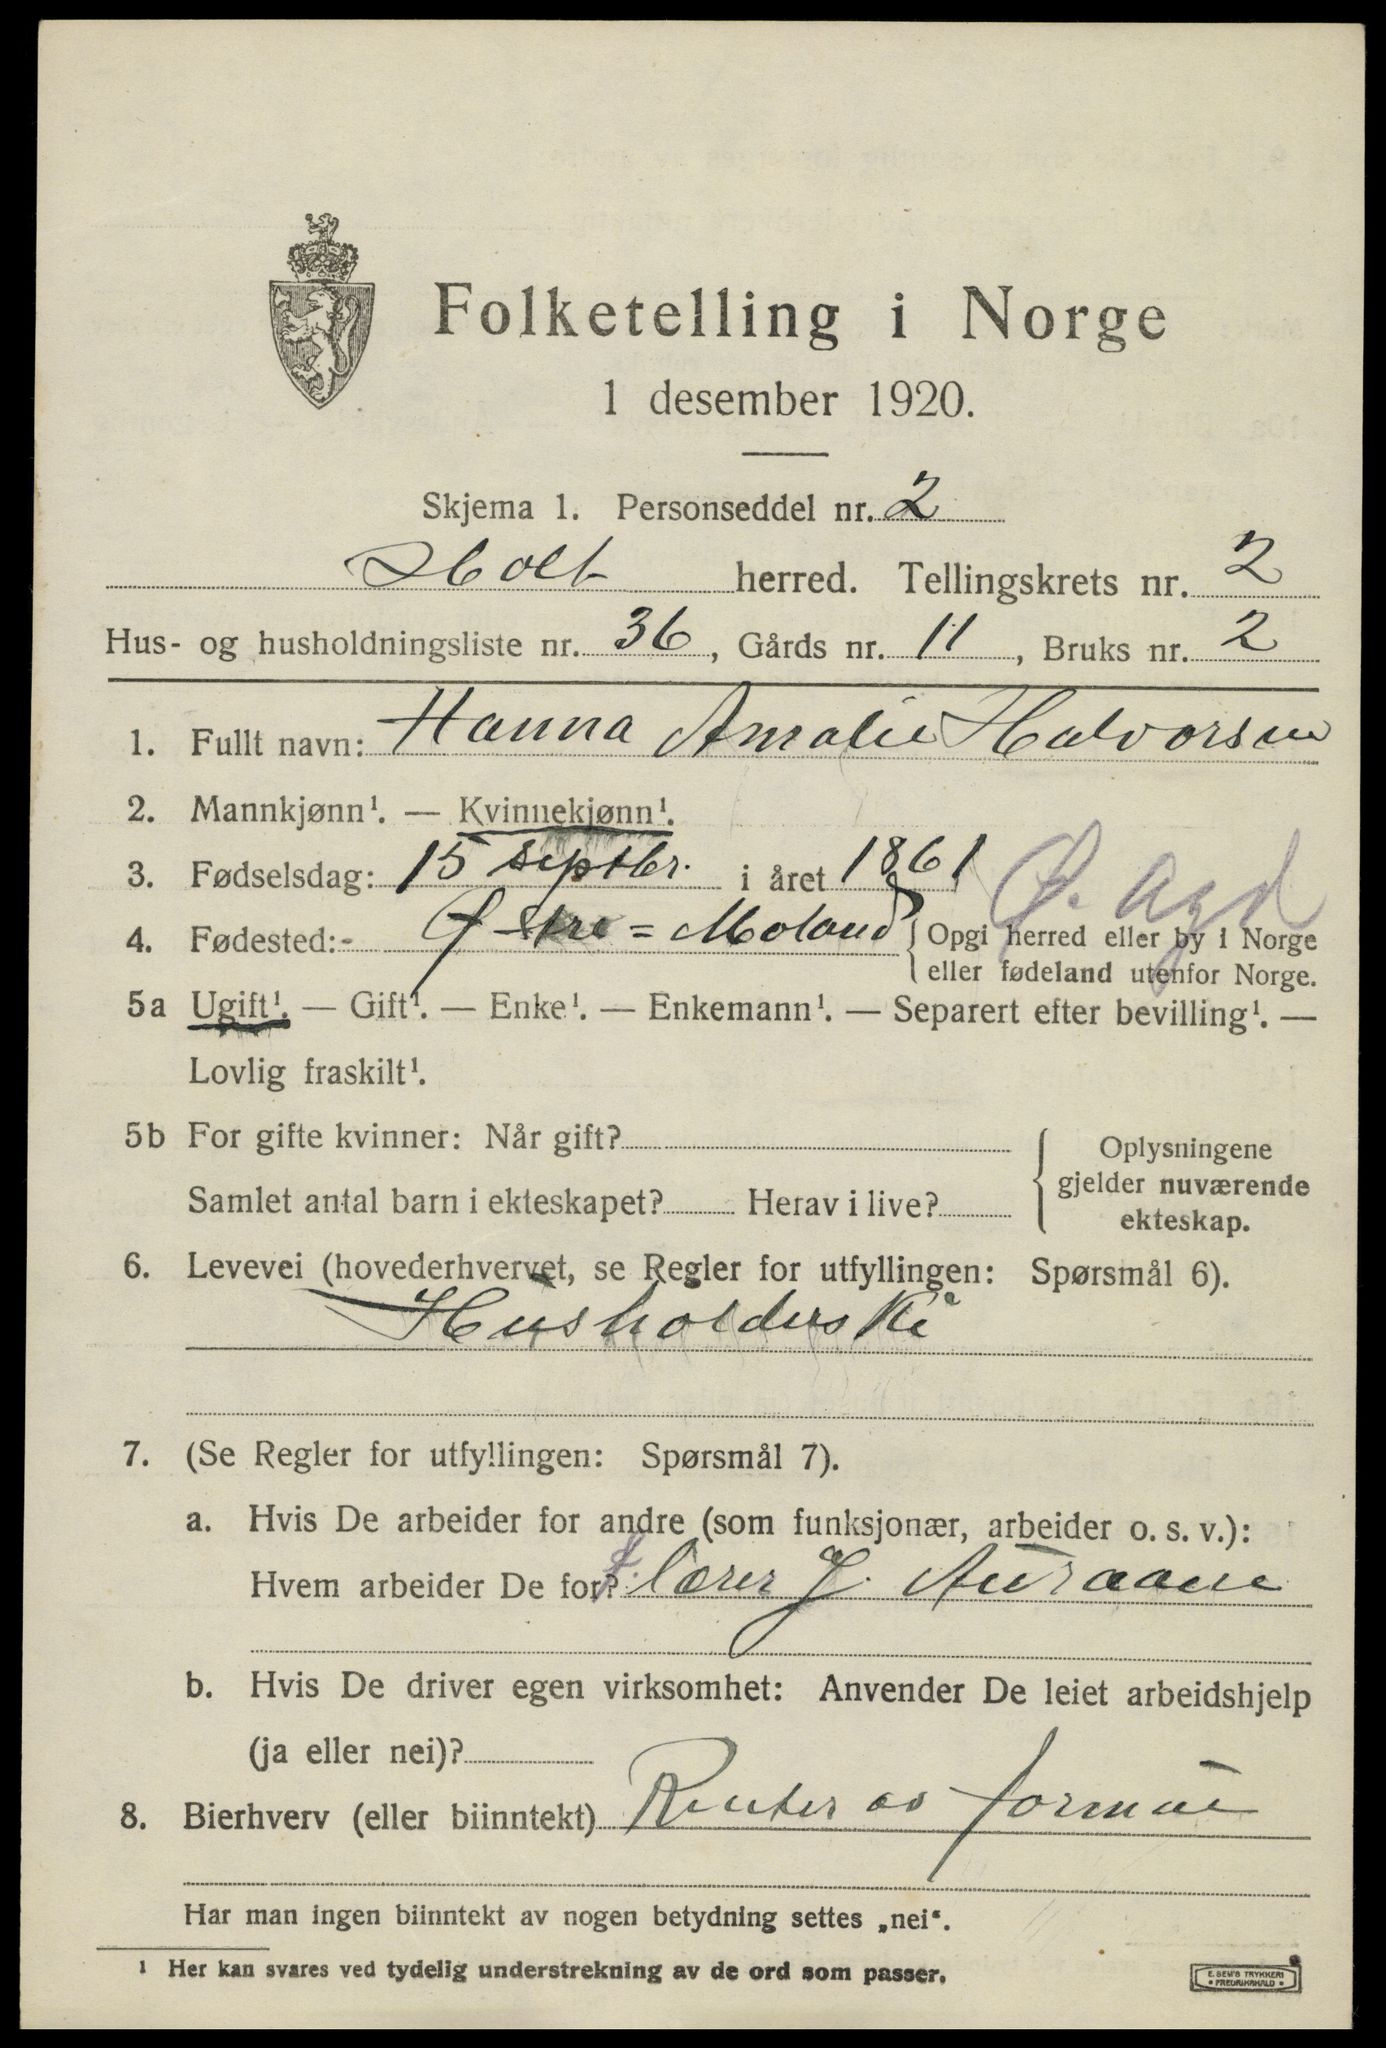 Folketelling i Norge
1 desember 1920.
Skjema 1. Personseddel nr. 2
Holt herred. Tellingskrets nr. 2
Hus- og husholdningsliste nr. 36, Gårds nr. 11, Bruks nr. 2
1. Fullt navn: Hanna Amalie Halvorsen
2. Mannkjønn¹. — Kvinnekjønn¹.
3. Fødselsdag: 15 septbr. i året 1861
Ø. Agd
4. Fødested: Østre = Moland { Opgi herred eller by i Norge
eller fødeland utenfor Norge.
5a Ugift¹. — Gift¹. — Enke¹. — Enkemann¹. — Separert efter bevilling¹. —
Lovlig fraskilt¹.
5b For gifte kvinner: Når gift?
Samlet antal barn i ekteskapet? Herav i live?
Oplysningene
gjelder nuværende
ekteskap.
6. Levevei (hovederhvervet, se Regler for utfyllingen: Spørsmål 6).
Husholderske
7. (Se Regler for utfyllingen: Spørsmål 7).
a. Hvis De arbeider for andre (som funksjonær, arbeider o. s. v.):
Hvem arbeider De for? f. lærer J. Auraaen
b. Hvis De driver egen virksomhet: Anvender De leiet arbeidshjelp
(ja eller nei)?
8. Bierhverv (eller biinntekt) Renter av formue
Har man ingen biinntekt av nogen betydning settes „nei“.
¹ Her kan svares ved tydelig understrekning av de ord som passer.
E. SEM'S TRYKKERI
• FREDRIKSHALD •